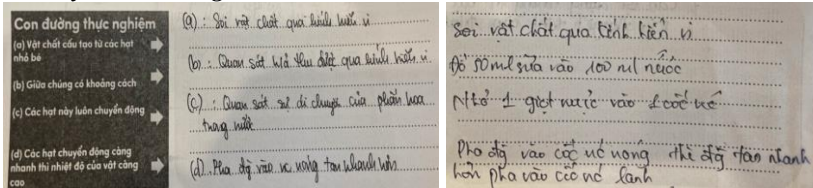 Con đường thực nghiệm
(a) Vật chất cấu tạo từ các hạt
nhỏ bé
(b) Giữa chúng có khoảng cách
(c) Các hạt này luôn chuyển động
(d) Các hạt chuyển động càng
nhanh thì nhiệt độ của vật càng
cao
(a) : Soi vật chất qua kính hiển vi
(b) : Quan sát thu được qua kính hiển vi
(c) : Quan sát sự di chuyển của phấn hoa
trong nước
(d) . Pha đg vào nc nóng tan nhanh hơn
Soi vật chất qua kính hiển vi
Đổ 50ml sữa vào 100 ml nước
Nhỏ 1 giọt mực vào 1 cốc nc
Pha đg vào cốc nc nóng thì đg tan nhanh
hơn pha vào cốc nc lạnh